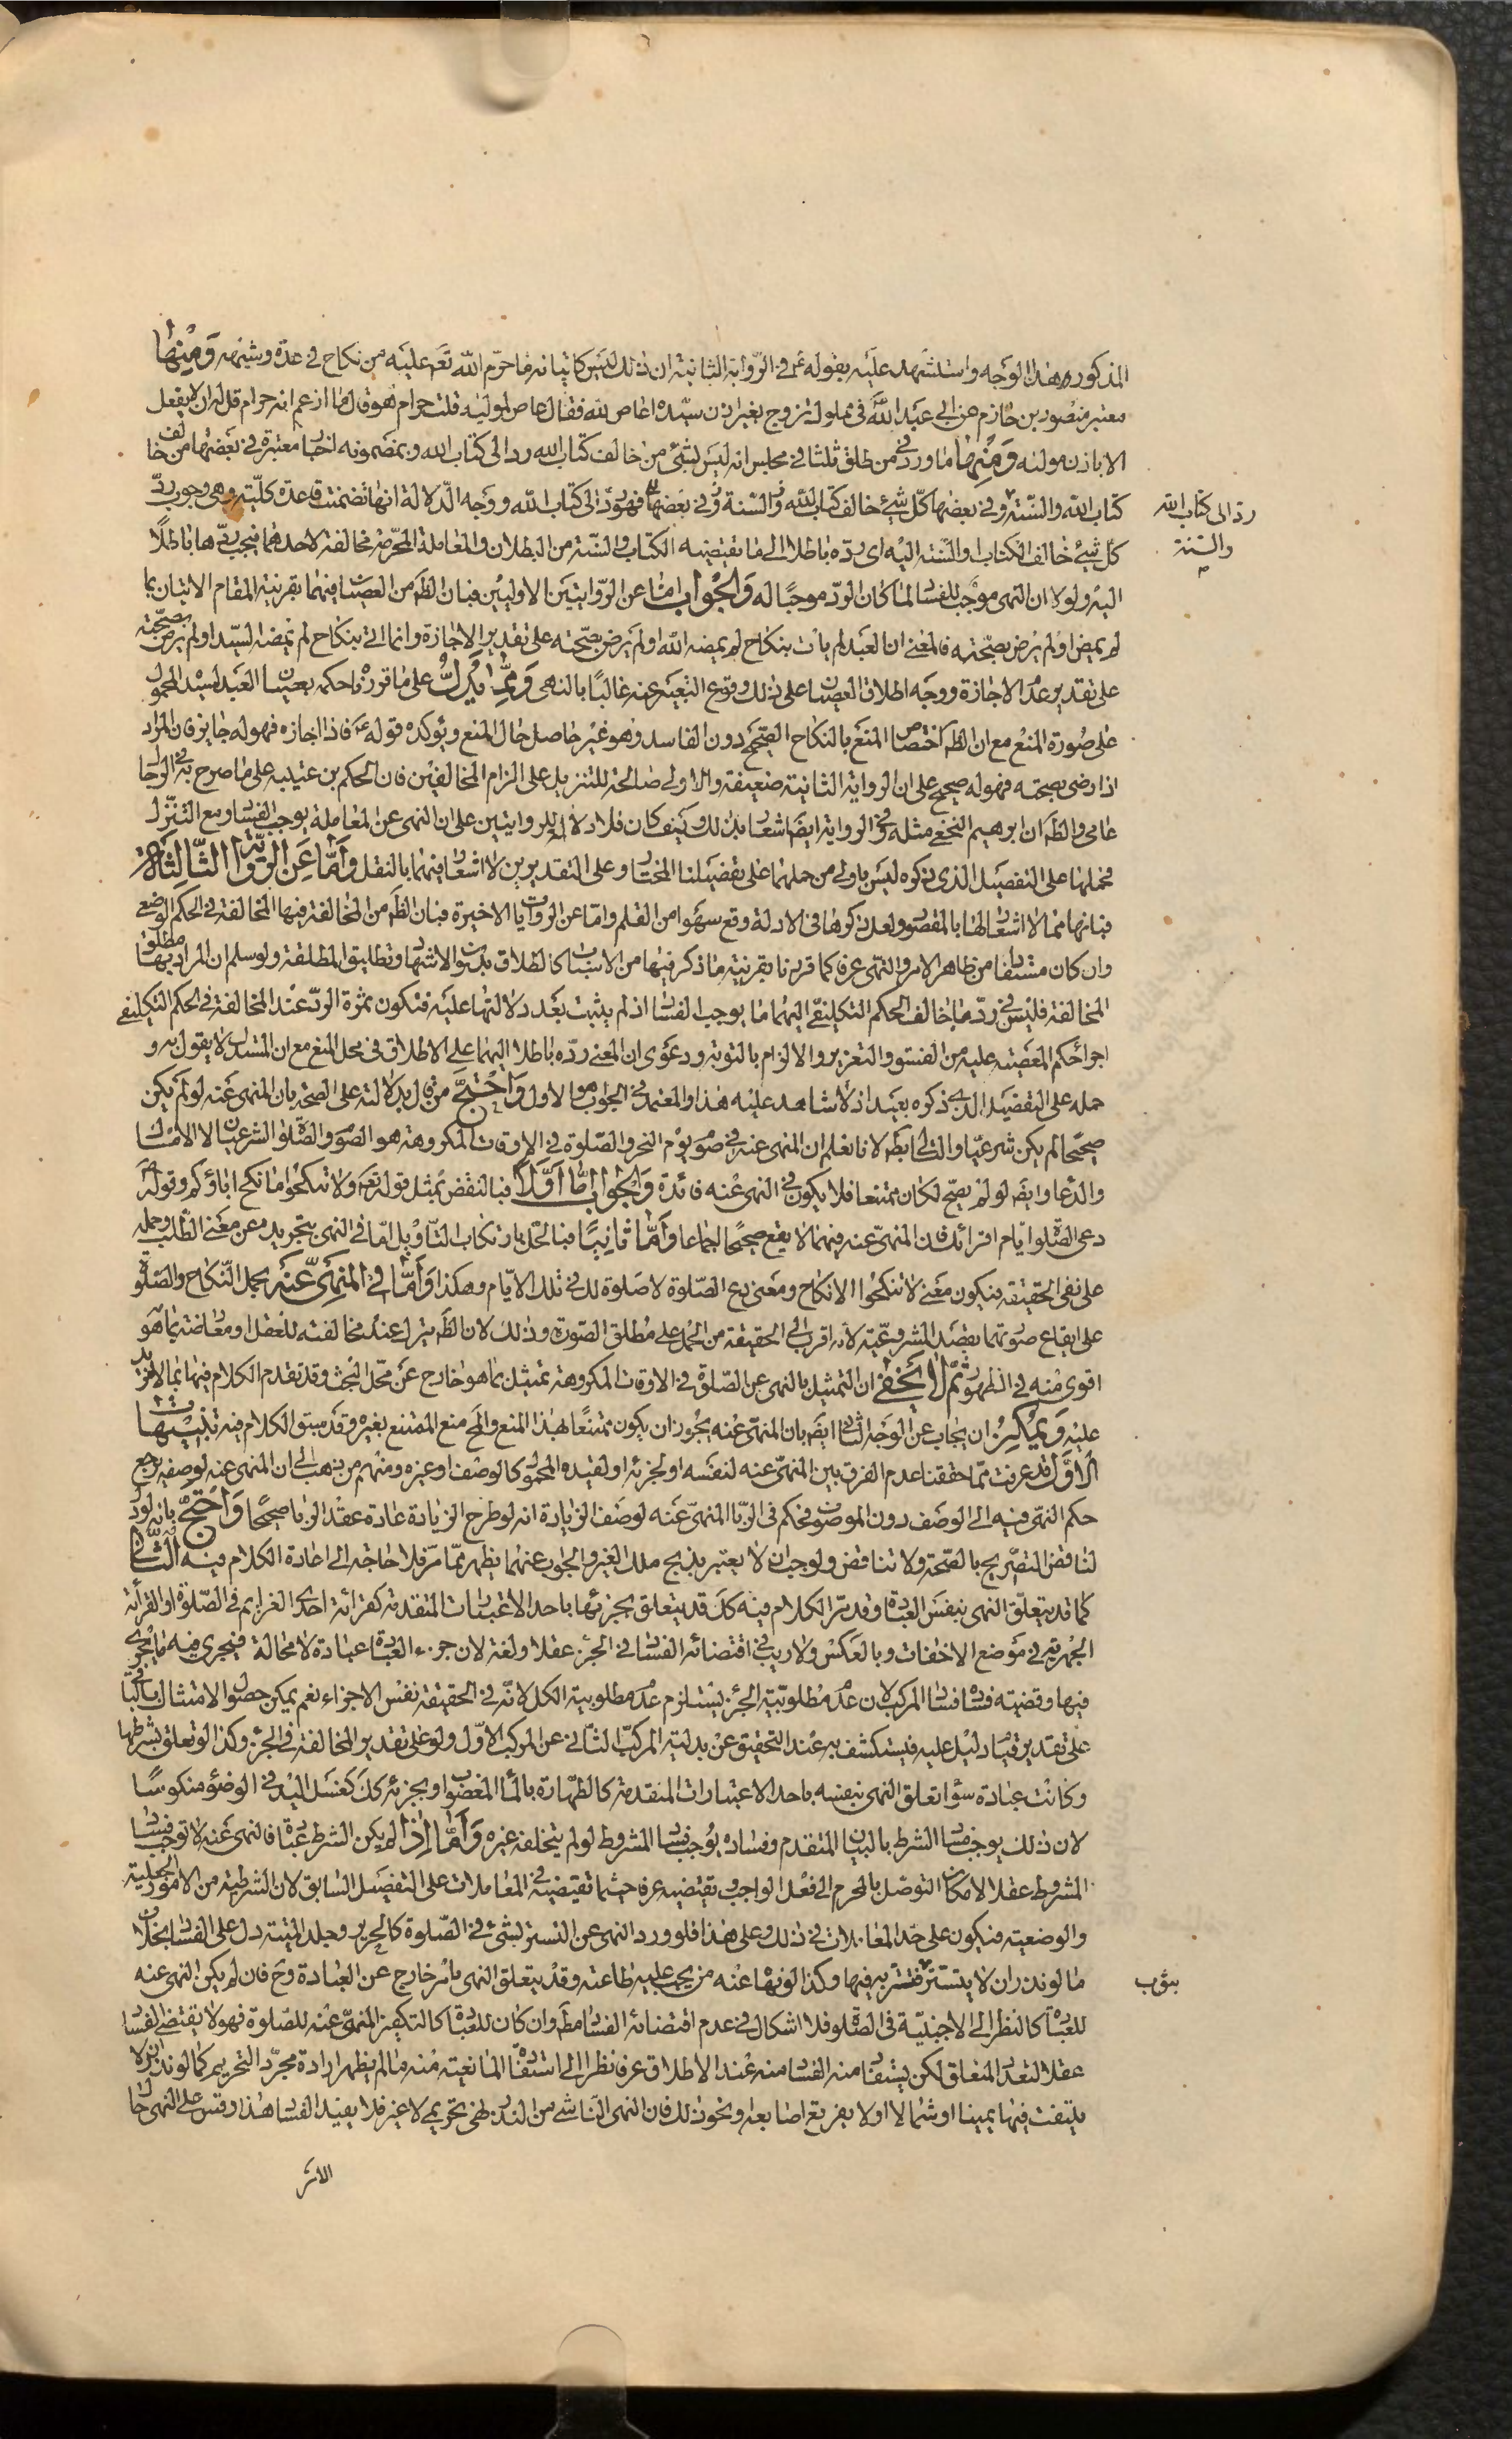 المذكور وهذا الوجه واستشهد عليه بقوله ع في الرواية الثانية ان ذلك ليس كاتيانه ما حرم الله تعم عليه من نكاح في عدة وشبهه ومنها
معتبر منصور بن حازم عن ابي عبد الله في مملوك تزوج بغير اذن سيده اعاص لله فقال عاص لمولاه قلت حرام هو قال ما ازعم انه حرام قل له ان لا يفعل
الا باذن مولاه ومنها ما ورد في من طلق ثلثا في مجلس انه ليس بشئ من خالف كتاب الله رد الى كتاب الله وبمضمونه اخبار معتبرة في بعضها من خالف
كتاب الله والسنة وفي بعضها كل شئ خالف كتاب الله والسنة وفي بعضها فهو رد الى كتاب الله ووجه الدلالة انها تضمنت قاعدة كلية وهي وجوب رد
رد الى كتاب الله
والسنة
كل شئ خالف الكتاب والسنة اليه اى رده باطلا الى ما يقتضيه الكتاب والسنة من البطلان والمعاملة المحرمة مخالفة لاحدهما فيجب ردها باطلا
اليه ولولا ان النهى موجب للفساد لما كان الرد موجبا له والجواب اما عن الروايتين الاوليين فبان الظ من العصيان فيهما بقرينة المقام الاتيان بما
لم يمض او لم يرض بصحته فالمعنى ان العبد لم يات بنكاح لم يمضه الله او لم يرض بصحته على تقدير الاجازة وانما اتى بنكاح لم يمضه السيد او لم يرض بصحته
على تقدير عدم الاجازة ووجه اطلاق العصيان على ذلك وقوع التعبير عنه غالبا بالنهى ومما يدل على ما قررناه حكمه بعصيان العبد لسيده المحمول
على صورة المنع مع ان الظ اختصاص المنع بالنكاح الصحيح دون الفاسد وهو غير حاصل حال المنع ويؤكده قوله ع فاذا اجازه فهو له جايز فان المراد
اذا رضى بصحته فهو له صحيح على ان الرواية الثانية ضعيفة والاولى صالحة للتنزيل على الزام المخالفين فان الحكم بن عتيبه على ما صرح به في الرجال
عامى والظ ان ابرهيم النخعى مثله وفي الرواية ايض اشعار بذلك وكيف كان فلا دلالة للروايتين على ان النهى عن المعاملة يوجب الفساد ومع التنزل
فحملها على التفصيل الذى ذكروه ليس باولى من حملهما على تفصيلنا المختار وعلى التقديرين لا اشعار فيهما بالنقل واما عن الرواية الثالثة
فبانها مما لا اشعار لها بالمقصود ولعل ذكرها في الادلة وقع سهوا من القلم واما عن الروايات الاخيرة فبان الظ من المخالفة فيها المخالفة في الحكم الوضعى
وان كان مستفادا من ظاهر الامر والنهى عرفا كما قررنا بقرينة ما ذكر فيها من الاسباب كالطلاق بدون الاشهاد وتطليق المطلقة ولو سلم ان المراد بها مطلق
المخالفة فليس في رد ما خالف الحكم التكليفى اليهما ما يوجب الفساد اذ لم يثبت بعد دلالتهما عليه فتكون ثمرة الرد عند المخالفة في الحكم التكليفى
اجراء حكم المعصية عليه من الفسق والتعزير والالزام بالتوبة ودعوى ان المعنى رده باطلا اليهما على الاطلاق في محل المنع مع ان المستدل لا يقول به و
حمله على التفصيل الذى ذكره بعيد اذ لا شاهد عليه هذا والمعتمد في الجواب هو الاول واحتج من قال بدلالته على الصحة بان المنهى عنه لو لم يكن
صحيحا لم يكن شرعيا والتالى بط لانا نعلم ان المنهى عنه في صوم يوم النحر والصلوة في الاوقات المكروهة هو الصوم والصلوة الشرعيان لا الامساك
والدعاء وايض لو لم يصح لكان ممتنعا فلا يكون في النهى عنه فائدة والجواب اما اولا فبالنقض بمثل قوله تعم ولا تنكحوا ما نكح اباؤكم وقوله ع
دعى الصلوة ايام اقرائك فان المنهى عنه فيهما لا يقع صحيحا اجماعا واما ثانيا فبالحل بارتكاب التاويل اما في النهى بتجريده عن معنى الطلب وحمله
على نفى الحقيقة فيكون معنى لا تنكحوا لا نكاح ومعنى دع الصلوة لا صلوة لك في تلك الايام وهكذا واما في المنهى عنه بحمل النكاح والصلوة
على ايقاع صورتهما بقصد المشروعية لانه اقرب الى الحقيقة من الحمل على مطلق الصورة وذلك لان الظ يترك عند مخالفته للعقل او معارضته بما هو
اقوى منه في الظهور ثم لا يخفى ان التمثيل بالنهى عن الصلوة في الاوقات المكروهة تمثيل بما هو خارج عن محل البحث وقد تقدم الكلام فيها بما لا مزيد
عليه ويمكن ان يجاب عن الوجه الثانى ايض بان المنهى عنه يجوز ان يكون ممتنعا بهذا المنع والمح منع الممتنع بغيره وقد سبق الكلام فيه تنبيهات
الاول قد عرفت مما حققنا عدم الفرق بين المنهى عنه لنفسه او لجزئه او لقيده المحمول كالوصف او غيره ومنهم من ذهب الى ان المنهى عنه لوصفه يرجع
حكم النهى فيه الى الوصف دون الموصوف فحكم في الربا المنهى عنه لوصف الزيادة انه لو طرح الزيادة عادة عقد الربا صحيحا واحتج بانه لو دل
لناقض التصريح بالصحة ولا تناقض ولوجب ان لا يعتبر بذبح ملك الغير والجواب عنهما يظهر مما مر فلا حاجة الى اعادة الكلام فيه الثانى
كما قد يتعلق النهى بنفس العبادة وقد مر الكلام فيه كك قد يتعلق بجزئها باحد الاعتبارات المتقدمة كقرائة احدى العزايم في الصلوة او القرائة
الجهرية في موضع الاخفات وبالعكس ولا ريب في اقتضائه الفساد في الجزء عقلا ولغة لان جزء العبادة عبادة لا محالة فيجرى فيه ما يجرى
فيها وقضيته فساده فساد المركب لان عدم مطلوبية الجزء يستلزم عدم مطلوبية الكل لانه في الحقيقة نفس الاجزاء نعم يمكن حصول الامتثال بالباقى
على تقدير قيام دليل عليه فيستكشف به عند التحقيق عن بدلية المركب الثانى عن المركب الاول ولو على تقدير المخالفة في الجزء وكذا لو تعلق بشرطها
وكانت عبادة سواء تعلق النهى بنفسه باحد الاعتبارات المتقدمة كالطهارة بالماء المغصوب او بجزئه كك كغسل اليد في الوضوء منكوسا
لان ذلك يوجب فساد الشرط بالبيان المتقدم وفساده يوجب فساد المشروط لو لم يتخلفه غيره واما اذا لم يكن الشرط عبادة فالنهى عنه لا توجب فساد
المشروط عقلا لامكان التوصل بالمحرم الى فعل الواجب ويقتضيه عرفا حيثما تقتضيه في المعاملات على التفصيل السابق لان الشرطية من الامور الجعلية
والوضعية فيكون على حد المعاملات في ذلك وعلى هذا فلو ورد النهى عن التستر بشئ في الصلوة كالحرير وجلد الميتة دل على الفساد بخلاف
ما لو نذر ان لا يتستر فتستر به فيها وكذا لو نهاه عنه من يجب عليه طاعته وقد يتعلق النهى بامر خارج عن العبادة وح فان لم يكن النهى عنه
بثوب
للعبادة كالنظر الى الاجنبية في الصلوة فلا اشكال في عدم اقتضائه الفساد مط وان كان للعبادة كالتكفير المنهى عنه للصلوة فهو لا يقتضى الفساد
عقلا لتعدد المتعلق لكن يستفاد منه الفساد منه عند الاطلاق عرفا نظرا الى استفادة المانعية منه ما لم يظهر ارادة مجرد التحريم كما لو نذر ان لا
يلتفت فيها يمينا او شمالا او لا يفرقع اصابعه ونحو ذلك فان النهى الناشى من النذر نهى تحريمى لا غير فلا يفيد الفساد هذا وقس على النهى حال
الامر